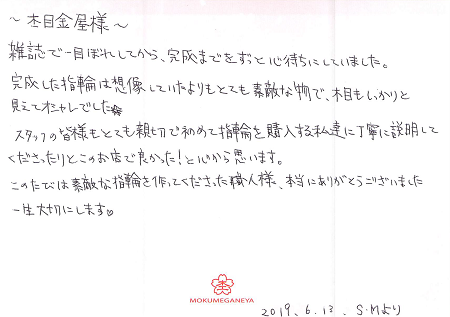 ～木目金屋様～
雑誌で一目ぼれしてから、完成までをずっと心待ちにしていました。
完成した指輪は想像していたよりもとても素敵な物で、木目もしっかりと
見えてオシャレでした
スタッフの皆様もとても親切で初めて指輪を購入する私達に丁寧に説明して
くださったりとこのお店で良かった!と心から思います。
このたびは素敵な指輪を作ってくださった職人様、本当にありがとうございました
一生大切にします♡
MOKUMEGANEYA
2019.6.13. S.Mより